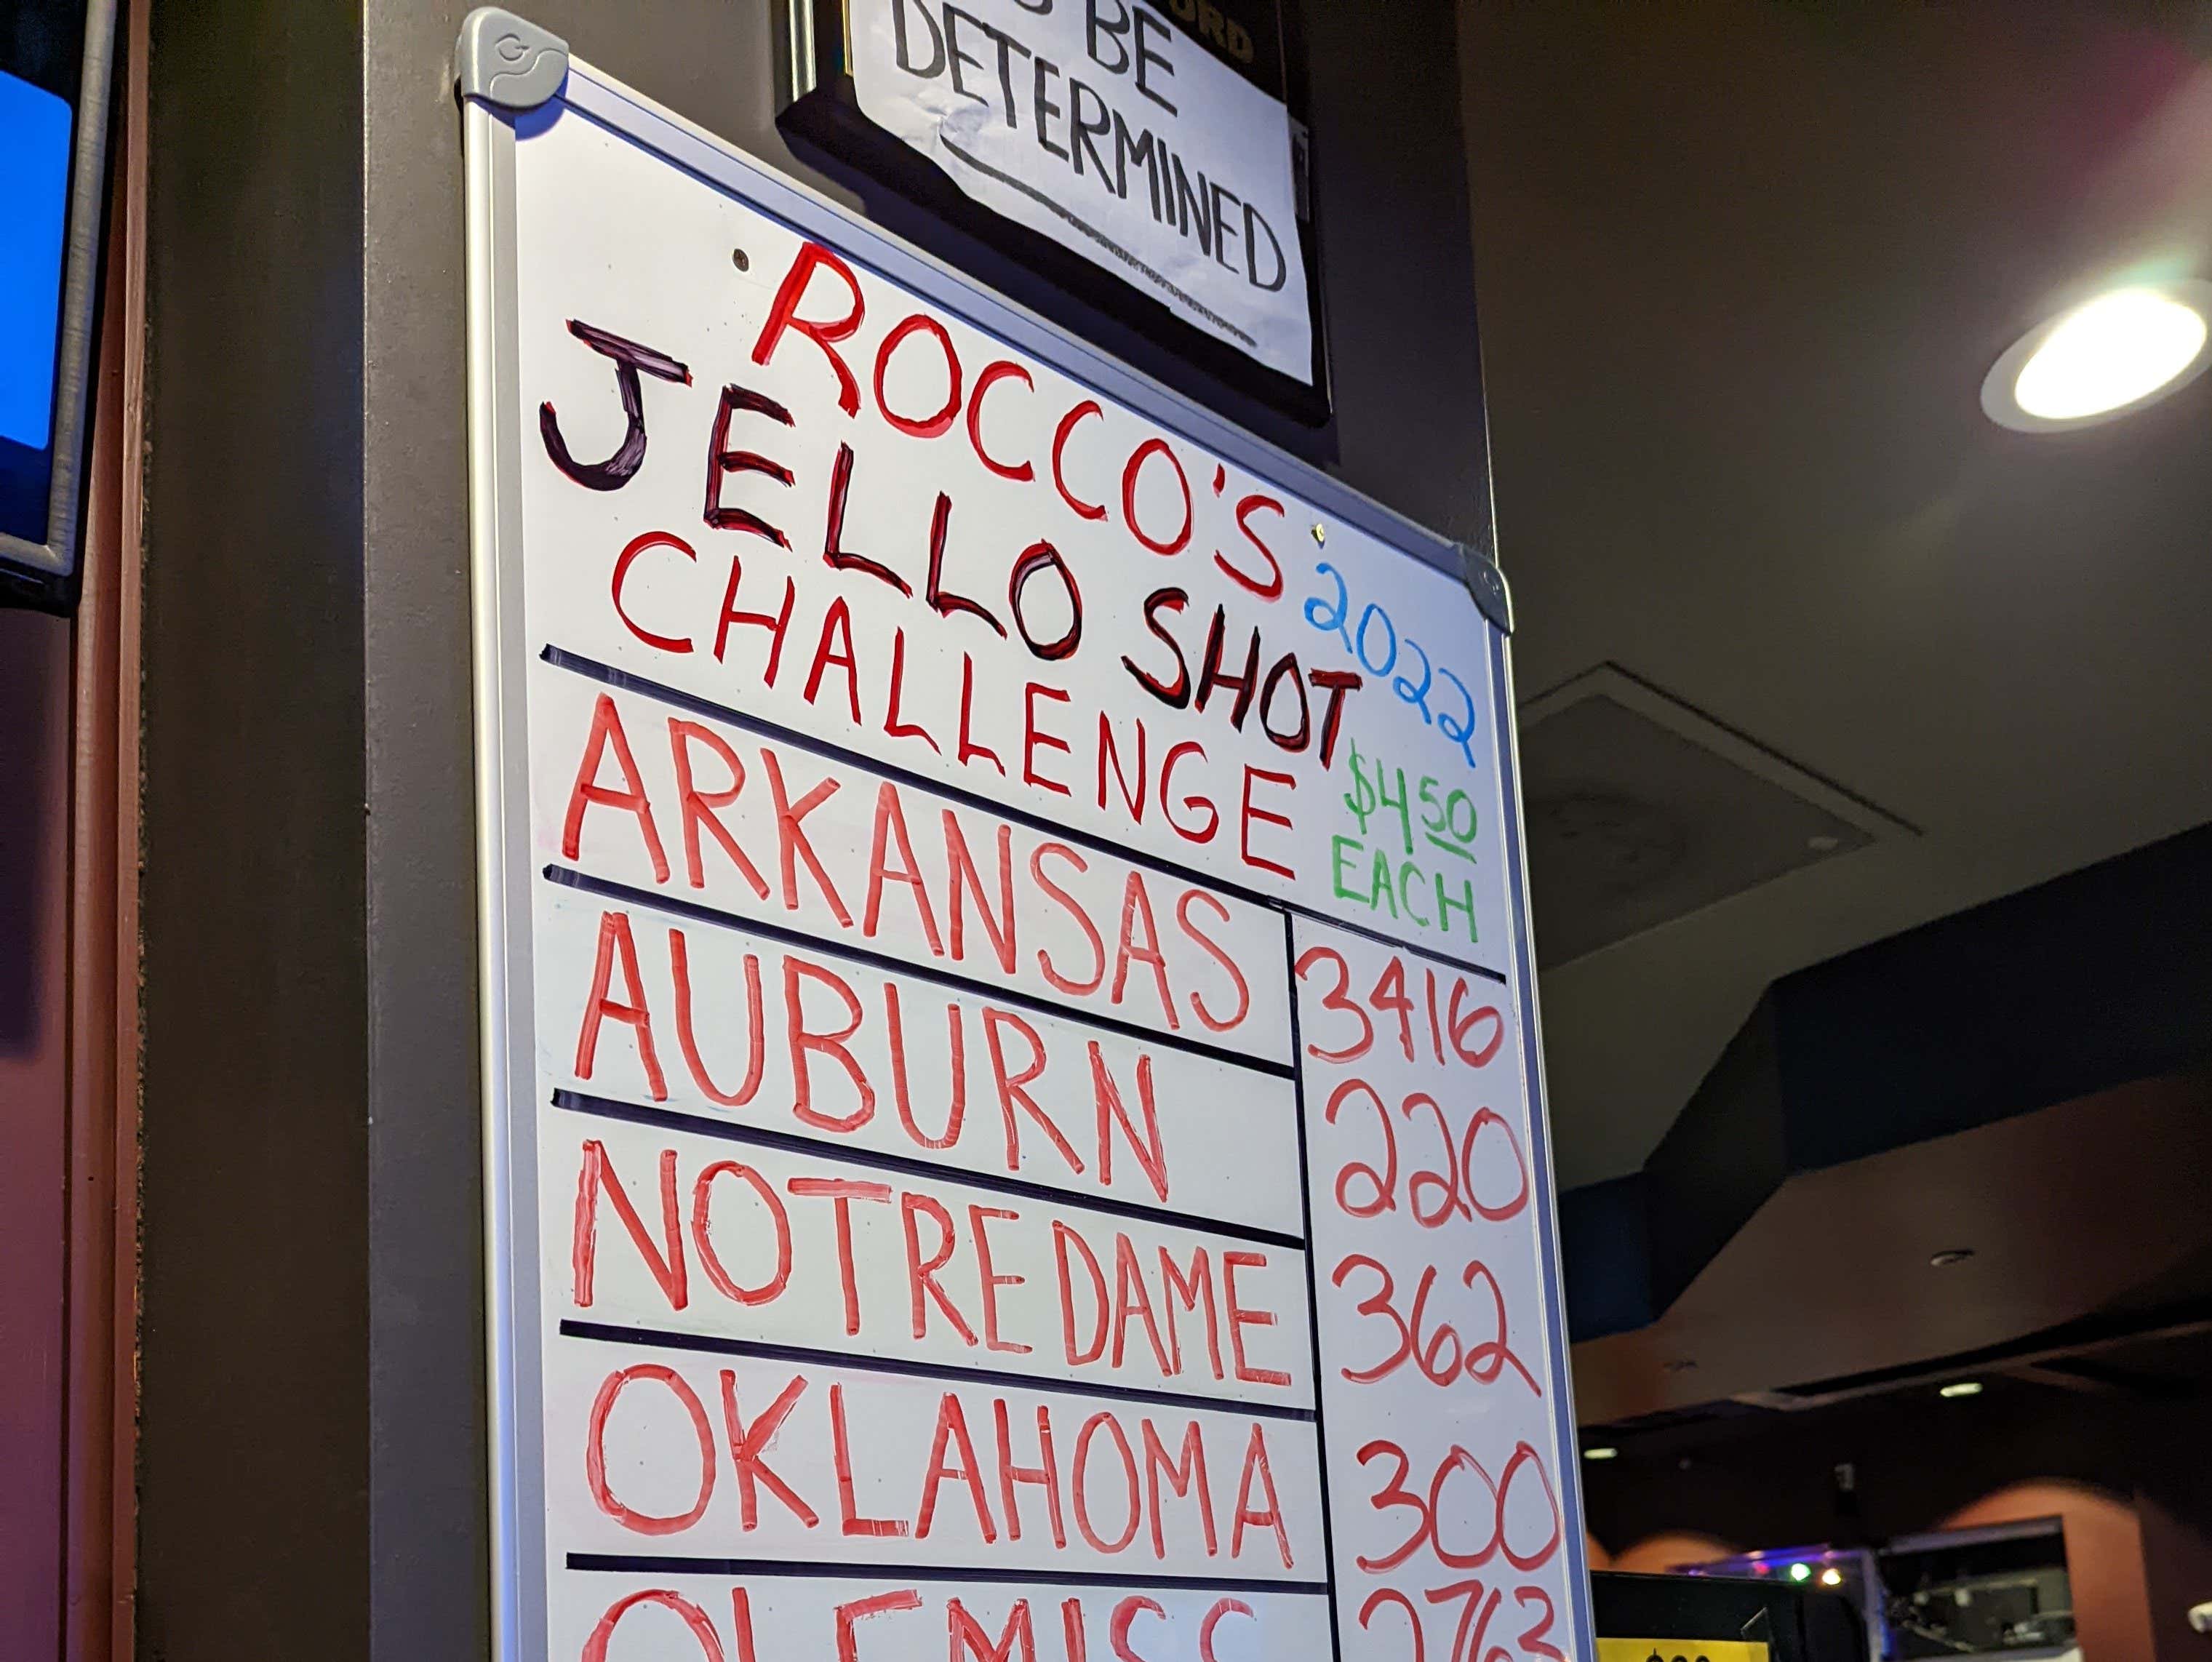 BE
DETERMINED
ROCCO'S
JELLO SHOT
CHALLENGE
2022
$4.50
EACH
ARKANSAS 3416
AUBURN 220
NOTRE DAME 362
OKLAHOMA 300
OLE MISS 2763